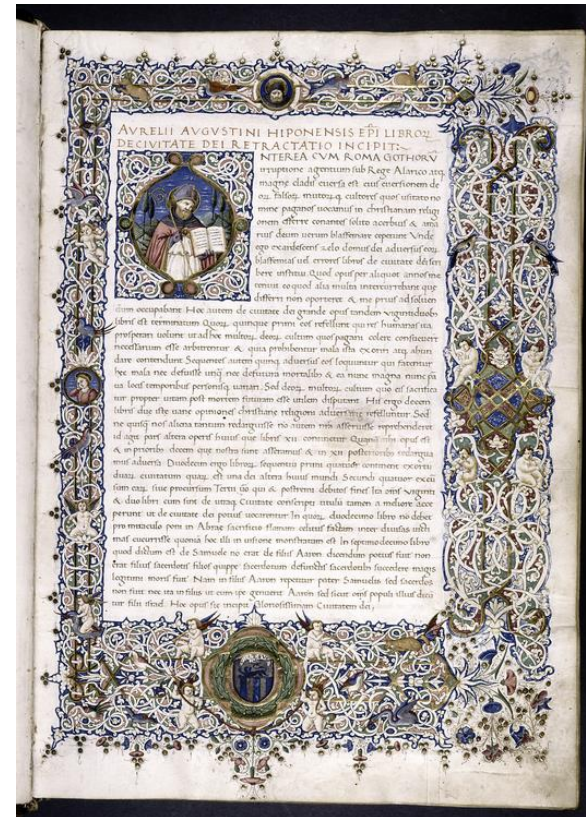 AVRELII AVGVSTINI HIPONENSIS EPI LIBROꝜ
DECIVITATE DEI RETRACTATIO INCIPIT:
NTEREA CVM ROMA GOTHORV̄
irruptione agentium sub Rege Alarico atq
magne cladis euersa est eius euersionem de
oꝝ falsoꝝ multoꝝq cultores quos usitato no
mine paganos uocamus in christianam religi
onem referre conantes solito acerbius & ama
rius deum uerum blasfemare ceperunt Vnde
ego exardescens zelo domus dei aduersus eoꝝ
blasfemias uel errores libros de ciuitate dei scri
bere institui Quod opus per aliquot annos me
tenuit eo quod alia multa intercurrebant que
differri non oporteret & me prius ad soluen
dum occupabant Hoc autem de ciuitate dei grande opus tandem uigintiduob
libris est terminatum Quoꝝ quinque primi eos refellunt qui res humanas ita
prosperari uolunt ut ad hoc multoꝝ deoꝝ cultum quos pagani colere consueuerunt
necessarium esse arbitrentur & quia prohibentur mala ista exoriri atq abun
dare contendunt Sequentes autem quinq aduersus eos loquuntur qui fatentur
hec mala nec defuisse unq nec defutura mortalib & ea nunc magna nunc pa
ua locis temporibus personisq uariari Sed deoꝝ multoꝝ cultum quo eis sacrifica
tur propter uitam post mortem futuram esse utilem disputant His ergo decem
libris due iste uane opiniones christiane religioni aduersarie refelluntur Sed
ne quisq nos aliena tantum redarguisse no autem nra asseruisse reprehenderet
id agit pars altera operis huius que libris xii continetur Quanq ubi opus est
& in priorib decem que nostra sunt asseramus & in xii posteriorib redargua
mus aduersa Duodecim ergo libroꝝ sequentiū primi quatuor continent exortū
duaꝝ ciuitatum quaꝝ est una dei altera huius mundi Secundi quatuor excu
sum eaꝝ siue procursum Tertii qui & postremi debitos fines Ita oms uiginti
& duo libri cum sint de utraq Ciuitate conscripti titulū tamen a meliore acce
perunt ut de ciuitate dei potius uocarentur In quoꝝ duodecimo libro no debet
pro miraculo poni in Abrae sacrificio flamam celitus factam inter diuisas uicti
mas cucurrisse quonia hoc illi in uisione monstratum est In septimodecimo libro
quod dictum est de Samuele no erat de filiis Aaron dicendum potius fuit non
erat filius sacerdotis filios quippe sacerdotum defunctis sacerdotib succedere magis
legitimi moris fuit Nam in filiis Aaron reperitur pater Samuelis sed sacerdos
non fuit nec ita in filiis ut eum ipe genuerit Aaron sed sicut oms populi illius dicu
tur filii israel Hoc opus sic incipit Gloriosissimam Ciuitatem dei,